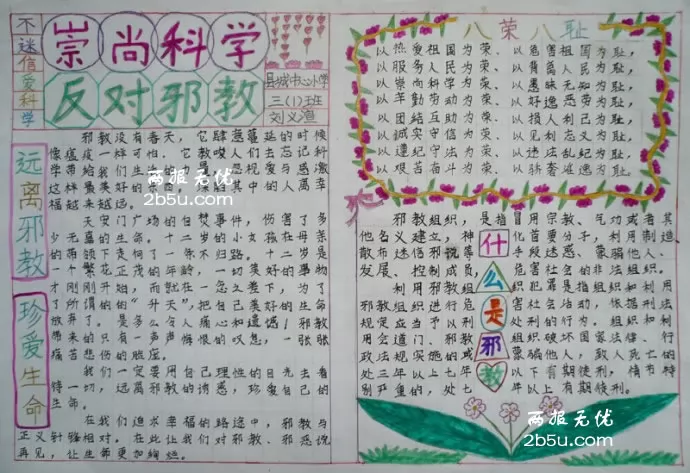 不迷信爱科学
崇尚科学
反对邪教
县城中心小学
三(1)班
刘义渲
远离邪教
珍爱生命
邪教没有春天，它肆意蔓延的时候
像瘟疫一样可怕。它教唆人们去忘记科
学带给我们生
这样最美好的
福越来越远。
天安门广场的自焚事件，伤害了多
少无辜的生命。十二岁的小女孩在母亲
的带领下走向了一条不归路。十二岁是
一个繁花正茂的年龄，一切美好的事物
才刚刚开始，而她就在一念之差下，为了
了所谓的的“升天”，把自己美好的生命
放弃了。是多么令人痛心和遗憾！邪教
带来的只有一声声悔恨的叹息，一张张
痛苦悲伤的脸庞。
我们一定要用自己理性的目光去看
待一切，远离邪教的诱惑，珍爱自己的
生命。
在我们追求幸福的路途中，邪教与
正义针锋相对。在此让我们对邪教、邪恶说
再见，让生命更加绚烂。
两报无优
2b5u.com
八荣八耻
以热爱祖国为荣、以危害祖国为耻，
以服务人民为荣、以背离人民为耻，
以崇尚科学为荣、以愚昧无知为耻，
以辛勤劳动为荣、以好逸恶劳为耻，
以团结互助为荣、以损人利己为耻，
以诚实守信为荣、以见利忘义为耻，
以遵纪守法为荣、以违法乱纪为耻，
以艰苦奋斗为荣、以骄奢淫逸为耻。
什么是邪教
邪教组织，是指冒用宗教、气功或者其
他名义建立，神化首要分子，利用制造
散布迷信邪说等手段迷惑、蒙骗他人、
发展、控制成员，危害社会的非法组织。
利用邪教组织犯罪是指组织和利用
邪教组织进行危害社会活动，依据刑法
规定应当予以刑处刑的行为。组织和利
用会道门、邪教组织破坏国家法律、行
政法规实施的或蒙骗他人，致人死亡的
处三年以上七年以下有期徒刑，情节特
别严重的，处七年以上有期徒刑。
两报无优
2b5u.com